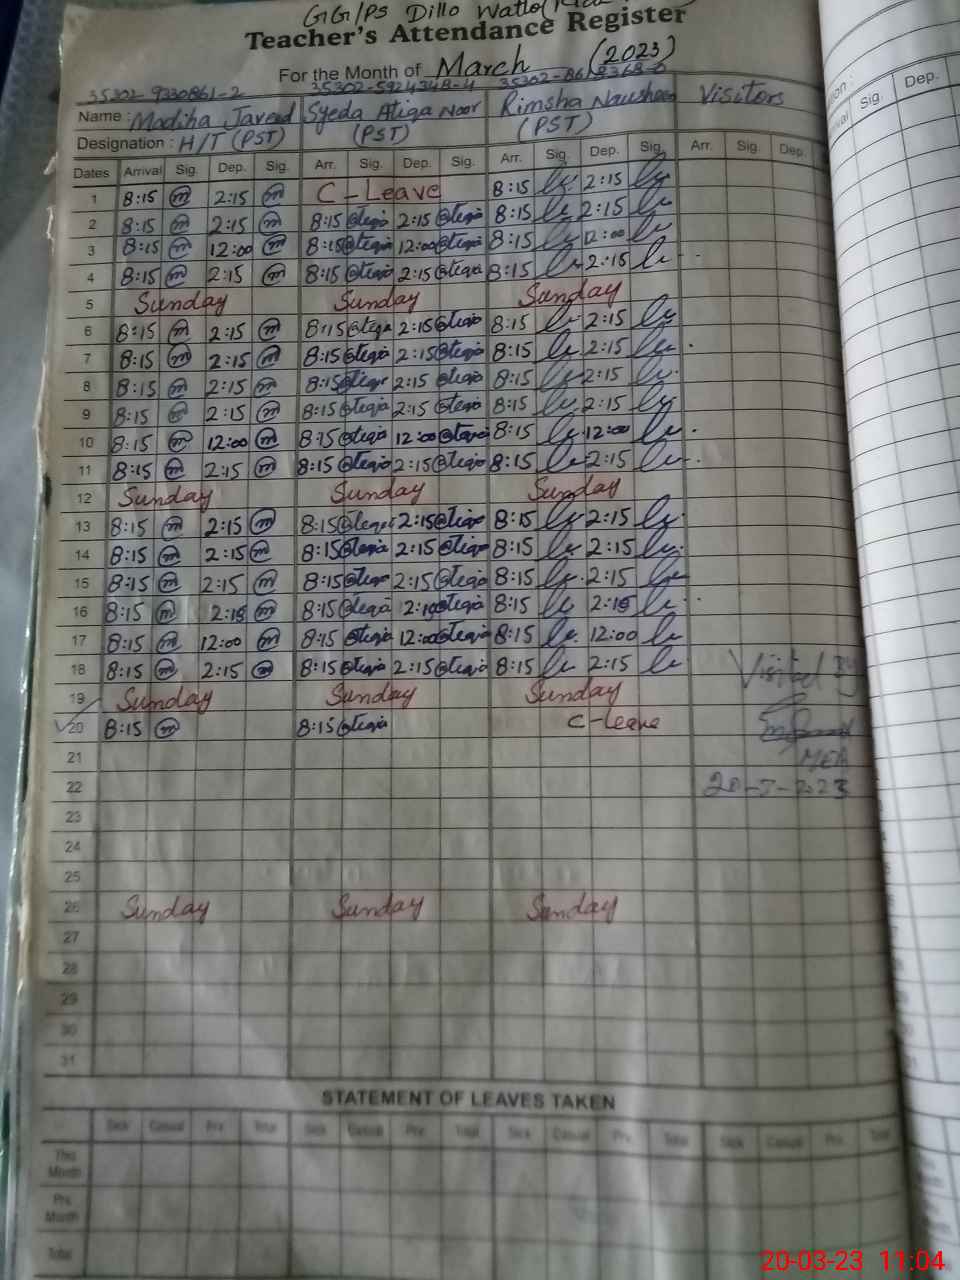 GG/PS Dillo
Teacher's Attendance Register
For the Month of March (2023)
35302-9330861-2 35302-5924348-4
Name: Madiha Javeed Syeda Atiqa Noor Rimsha Nausheen Visitors
Designation: H/T (PST) (PST) (PST)
Dates Arrival Sig. Dep. Sig. Arr. Sig. Dep. Sig. Arr. Sig. Dep. Sig. Arr. Sig. Dep.
1 8:15 m 2:15 m C-Leave 8:15 2:15
2 8:15 m 2:15 m 8:15 Atiqa 2:15 Atiqa 8:15 2:15
3 8:15 m 12:00 m 8:15 Atiqa 12:00 Atiqa 8:15 12:00
4 8:15 m 2:15 m 8:15 Atiqa 2:15 Atiqa 8:15 2:15
5 Sunday Sunday Sunday
6 8:15 m 2:15 m 8:15 Atiqa 2:15 Atiqa 8:15 2:15
7 8:15 m 2:15 m 8:15 Atiqa 2:15 Atiqa 8:15 2:15
8 8:15 m 2:15 m 8:15 Atiqa 2:15 Atiqa 8:15 2:15
9 8:15 m 2:15 m 8:15 Atiqa 2:15 Atiqa 8:15 2:15
10 8:15 m 12:00 m 8:15 Atiqa 12:00 Atiqa 8:15 12:00
11 8:15 m 2:15 m 8:15 Atiqa 2:15 Atiqa 8:15 2:15
12 Sunday Sunday Sunday
13 8:15 m 2:15 m 8:15 Atiqa 2:15 Atiqa 8:15 2:15
14 8:15 m 2:15 m 8:15 Atiqa 2:15 Atiqa 8:15 2:15
15 8:15 m 2:15 m 8:15 Atiqa 2:15 Atiqa 8:15 2:15
16 8:15 m 2:15 m 8:15 Atiqa 2:15 Atiqa 8:15 2:15
17 8:15 m 12:00 m 8:15 Atiqa 12:00 Atiqa 8:15 12:00
18 8:15 m 2:15 m 8:15 Atiqa 2:15 Atiqa 8:15 2:15
Visited By
19 Sunday Sunday Sunday
20 8:15 m 8:15 Atiqa C-leave
21 MEA
22 20-3-2023
23
24
25
26 Sunday Sunday Sunday
27
28
29
30
31
STATEMENT OF LEAVES TAKEN
Sick Casual Prv. Total Sick Casual Prv. Total Sick Casual Prv. Total Sick Casual Prv. Total
This Month
Prv. Month
Total
20-03-23 11:04